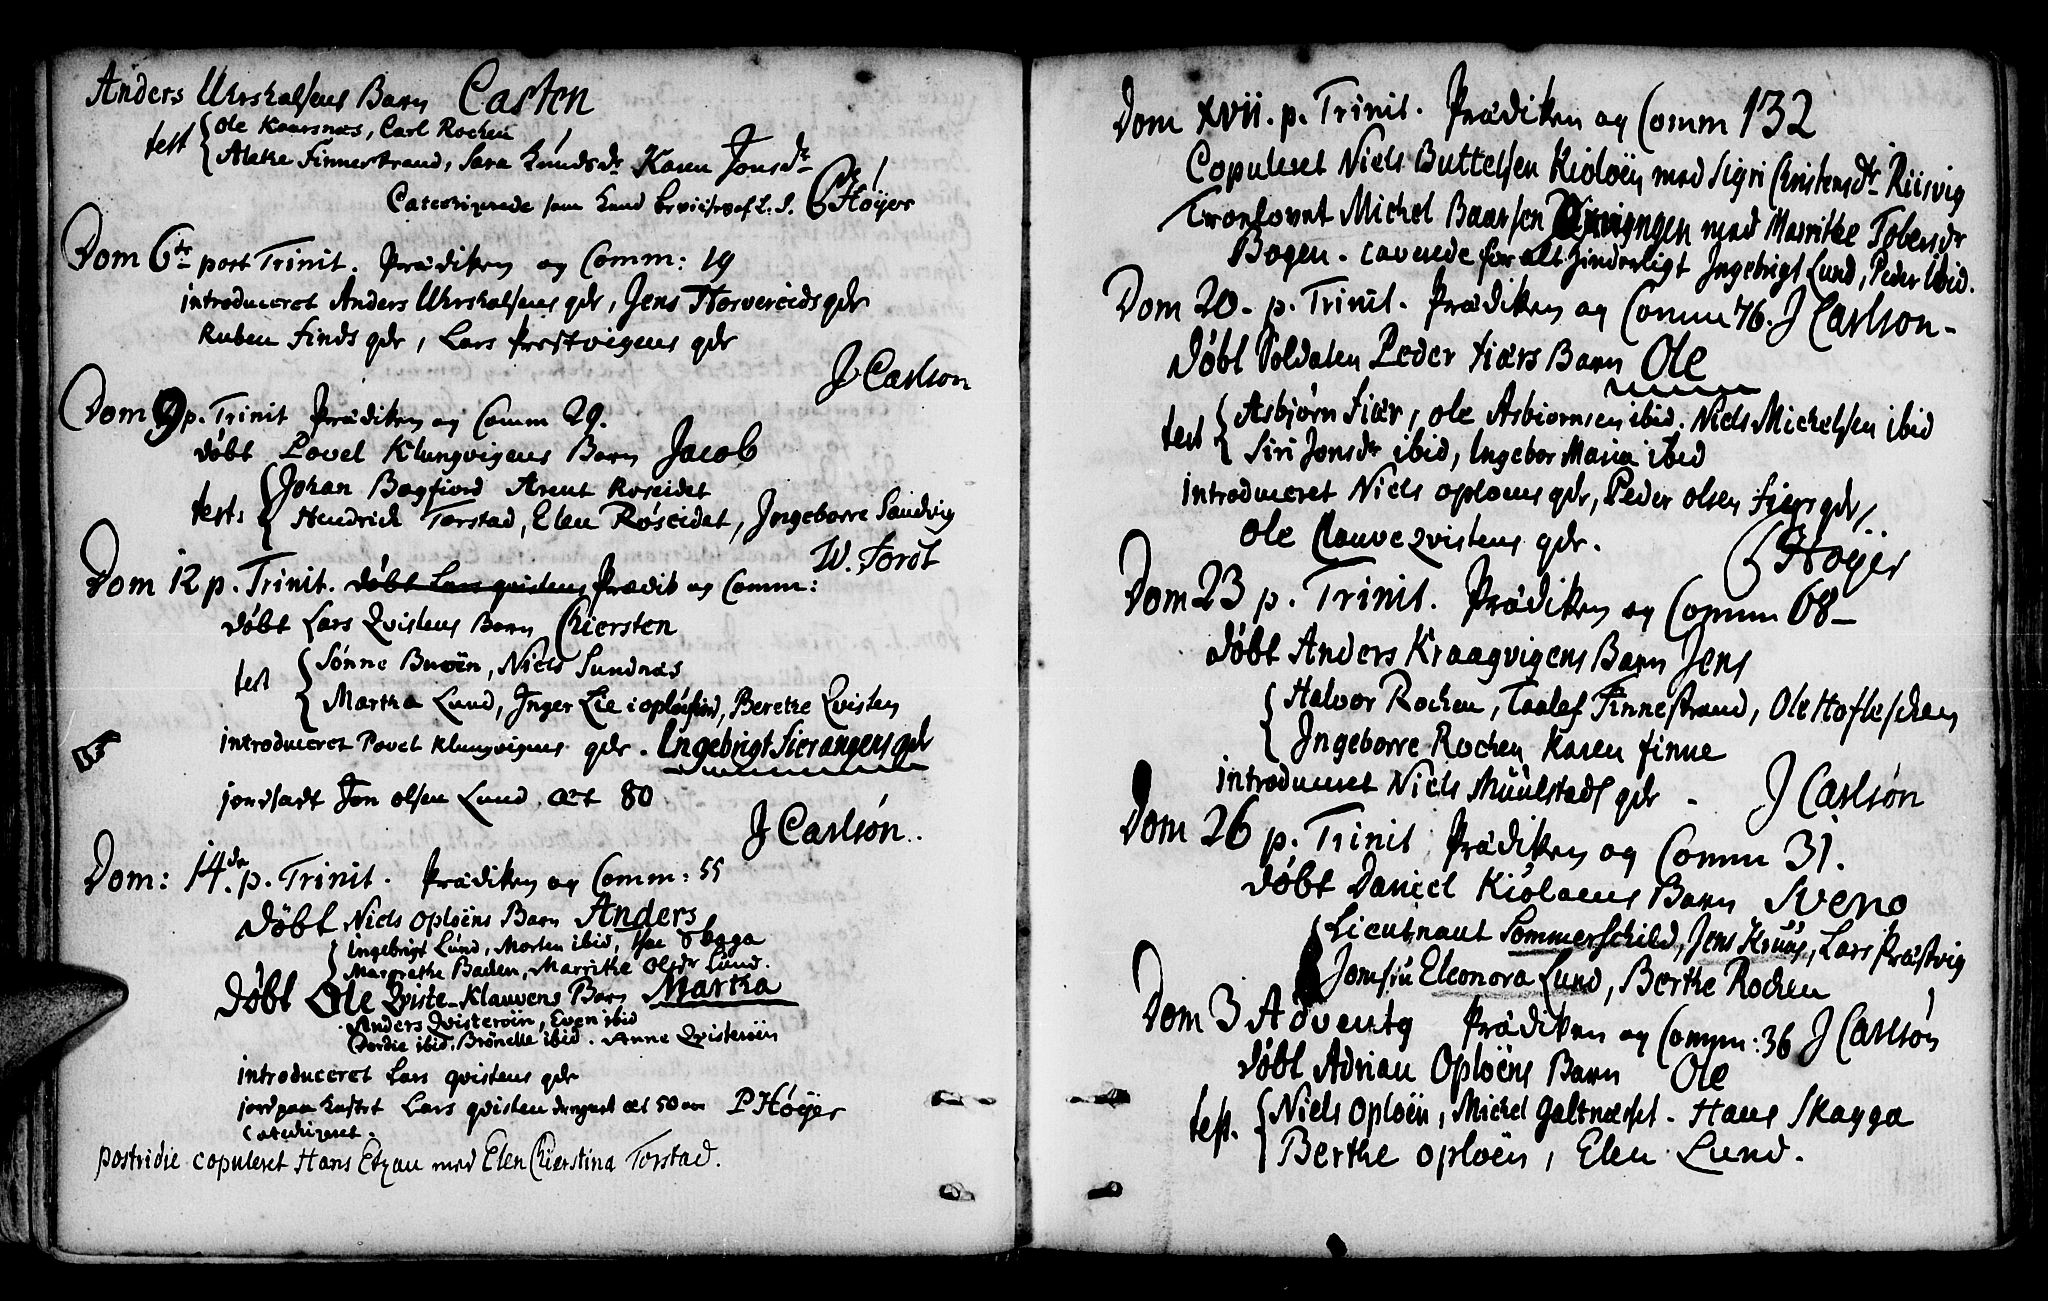 Anders Uhrskalsens Barn Casten
test Ole Kaarsnæs, Carl Rochen
Aletke Finnestrand, Sara Knudsdr Karen Jonsdr
Catechizerede som kand beviises af L. S. PHøyer
Dom 6te post Trinit. Prædiken og Comm: 19
introduceret Anders Uhrskalsens qdr, Jens Horvereids qdr
Ruben Finds qdr, Lars Præstvigens qdr
J Carlson
Dom 9 p. Trinit Prædiken og Comm 29.
døbt Povel Klungvigens Barn Jacob
test: Johan Bogfiord Arent Røseidet
Hendrich Torstad, Elen Røseidet, Ingeborre Sandvig
W. Torst
Dom 12 p. Trinit. døbt Lars qvistens Prædik og Comm:
døbt Lars Qvistens Barn Chiersten
test Sønne Buøen, Niels Sundnæs
Martha Lund, Inger Lie i opløfiord, Beretke Qvisten
introduceret Povel Klungvigens qdr. Ingebrigt Fierangens qdr
jordsadt Jon olsen Lund æt 80
J Carlsøn.
Dom: 14da p. Trinit. Prædiken og Comm: 55
døbt Niels Opløens Barn Anders
Ingebrigt Lund, Morten ibid, Skaga
Margrethe Baden, Marritke Olsdr Lund.
døbt Ole Qviste-Klauvens Barn Martha
Anders Qvisterøin, Even ibid
Dordie ibid, Brønelle ibid. Anne Qvisterøin
introduceret Lars qvistens qdr
jord paa kastet Lars qvisten æt 50 PHøyer
Catechizeret.
postridie copuleret Hans Etzau med Elen Chierstina Torstad.
Dom XVII. p. Trinit. Prædiken og Comm 132
Copuleret Niels Buttelsen Kioløen med Sigri Christensdr Riisvig
Tronlovet Michel Baarsen med Marritke Tobersdr
Bogen. caverede for alt hinderligt Ingebrigt Lund, Peder Ibid.
Dom 20. p. Trinit. Prædiken og Comm 76. J Carlson
døbt Soldaten Peder Fiærs Barn Ole
test Asbjørn Fiær, ole Asbiørnsen ibid. Niels Michelsen ibid
Siri Jonsdr ibid, Ingebor Maria ibid
introduceret Niels opløens qdr, Peder olsen Fiærs qdr,
Ole Clauveqvistens qdr.
PHøyer
Dom 23 p. Trinit. Prædiken og Comm 68
døbt Anders Kraagvigens Barn Jens
Halvor Rochen, Taalef Finnestrand, Ole Hofleschen
Ingeborre Rochen Karen Finne
introduceret Niels Muulstads qdr
J Carlsøn
Dom 26 p. Trinit Prædiken og Comm 31.
døbt Daniel Kioløens Barn Sveno
Lieutnant Sommerschild, Jens Kruus, Lars Præstvig
Jomfru Eleonora Lund, Berthe Rochen
Dom 3 Adventq Prædiken og Comm: 36 J Carlsøn
døbt Adrian Opløens Barn Ole
test. Niels Opløen, Michel Galtnæsset. Hans Skagga
Berthe opløen, Elen Lund.